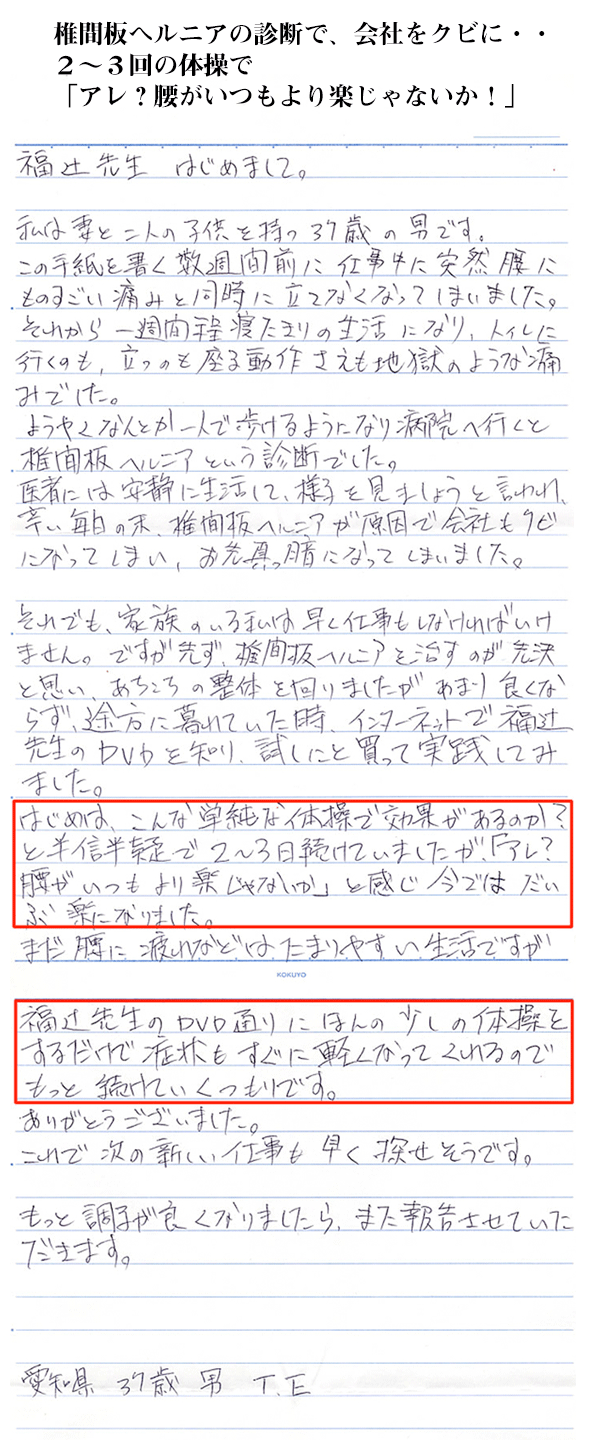 椎間板ヘルニアの診断で、会社をクビに・・
２～３回の体操で
「アレ？腰がいつもより楽じゃないか！」
福辻先生　はじめまして。
私は妻と二人の子供を持つ37歳の男です。
この手紙を書く数週間前に仕事中に突然腰に
ものすごい痛みと同時に立てなくなってしまいました。
それから一週間程寝たきりの生活になり、トイレに
行くのも、立つのも座る動作さえも地獄のような痛
みでした。
ようやくなんとか一人で歩けるようになり病院へ行くと
椎間板ヘルニアという診断でした。
医者には安静に生活して、様子を見ましょうと言われ、
辛い毎日の末、椎間板ヘルニアが原因で会社もクビ
になってしまい、お先真っ暗になってしまいました。
それでも、家族のいる私は早く仕事もしなければいけ
ません。ですが先ず、椎間板ヘルニアを治すのが先決
と思い、あちこちの整体を回りましたがあまり良くな
らず、途方に暮れていた時、インターネットで福辻
先生のDVDを知り、試しにと買って実践してみ
ました。
はじめは、こんな単純な体操で効果があるのか?
と半信半疑で2～3日続けていましたが、「アレ?
腰がいつもより楽じゃないか」と感じ今ではだい
ぶ楽になりました。
まだ腰に疲れなどはたまりやすい生活ですが
KOKUYO
福辻先生のDVD通りにほんの少しの体操を
するだけで症状もすぐに軽くなってくれるので
もっと続けていくつもりです。
ありがとうございました。
これで次の新しい仕事も早く探せそうです。
もっと調子が良くなりましたら、また報告させていた
だきます。
愛知県　37歳　男　T.E